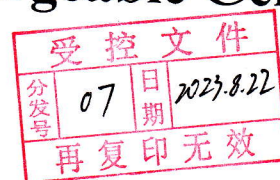 受控文件
分发号 07 日期 2023.8.22
再复印无效